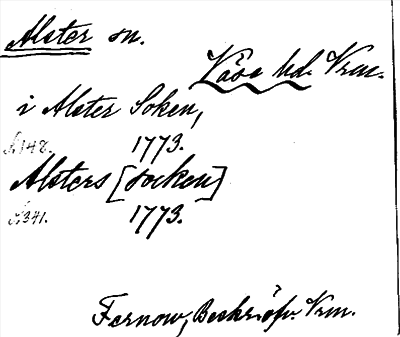 Alster sn.
Väse hd. Vrm.
i Alster Soken,
s. 148. 1773.
Alsters [socken]
s. 341. 1773.
Fernow, Beskrifv. Vrm.